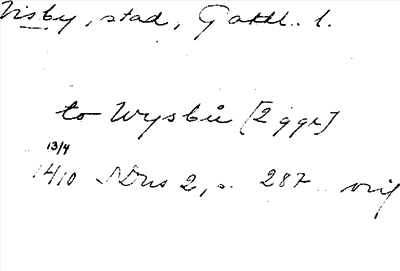 Visby, stad, Gotl. l.
to Wysbü [2 ggr]
13/4
1410 SDns 2, s. 287 orig